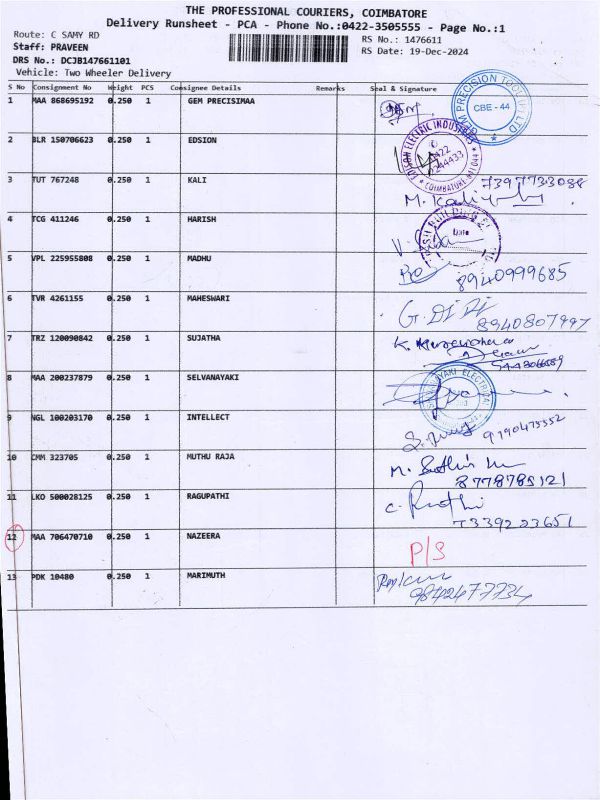 THE PROFESSIONAL COURIERS, COIMBATORE
Delivery Runsheet - PCA - Phone No.:0422-3505555 - Page No.:1
Route: C SAMY RD
RS No.: 1476611
Staff: PRAVEEN
RS Date: 19-Dec-2024
DRS No.: DCJB147661101
Vehicle: Two Wheeler Delivery
S No Consignment No Weight PCS Consignee Details Remarks Seal & Signature
1 MAA 868695192 0.250 1 GEM PRECISIMAA
GEM PRECISION CBE - 44
2 BLR 150706623 0.250 1 EDSION
EDISON ELECTRIC INDUSTRIES 0422 COIMBATORE
3 TUT 767248 0.250 1 KALI
7397733088
4 TCG 411246 0.250 1 HARISH
Date
5 VPL 225955808 0.250 1 MADHU
8940999685
6 TVR 4261155 0.250 1 MAHESWARI
8940807997
7 TRZ 120090842 0.250 1 SUJATHA
8 MAA 200237879 0.250 1 SELVANAYAKI
SELVANAYAKI ELECTRICAL
9 NGL 100203170 0.250 1 INTELLECT
10 CMM 323705 0.250 1 MUTHU RAJA
8778785121
11 LKO 500028125 0.250 1 RAGUPATHI
7339223651
12 MAA 706470710 0.250 1 NAZEERA
P/S
13 PDK 10480 0.250 1 MARIMUTH
9842477734